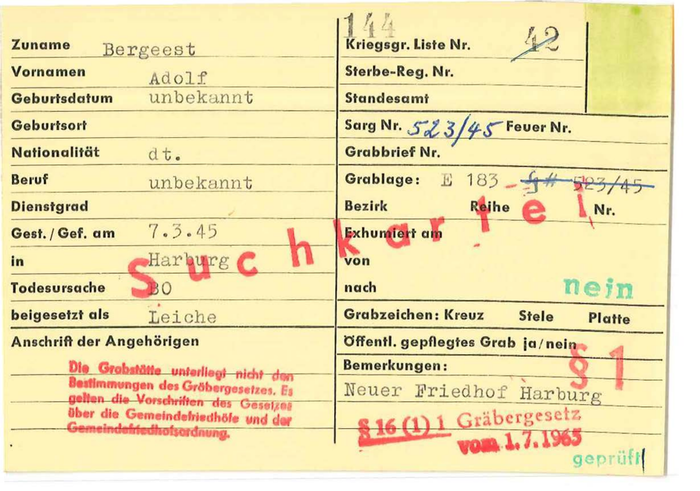 144
Zuname Bergeest
Kriegsgr. Liste Nr. 42
Vornamen Adolf
Sterbe-Reg. Nr.
Geburtsdatum unbekannt
Standesamt
Geburtsort
Sarg Nr. 523/45 Feuer Nr.
Nationalität dt.
Grabbrief Nr.
Beruf unbekannt
Grablage: E 183 523/45
Dienstgrad
Bezirk Reihe Nr.
Gest./Gef. am 7.3.45
Exhumiert am
in Harburg
von
Suchkartei
Todesursache BO
nach nein
beigesetzt als Leiche
Grabzeichen: Kreuz Stele Platte
Anschrift der Angehörigen
Öffentl. gepflegtes Grab ja/nein
§ 1
Die Grabstätte unterliegt nicht den
Bestimmungen des Gräbergesetzes. Es
gelten die Vorschriften des Gesetzes
über die Gemeindefriedhöfe und der
Gemeindefriedhofsordnung.
Bemerkungen:
Neuer Friedhof Harburg
§ 16 (1) 1 Gräbergesetz
vom 1.7.1965
geprüft